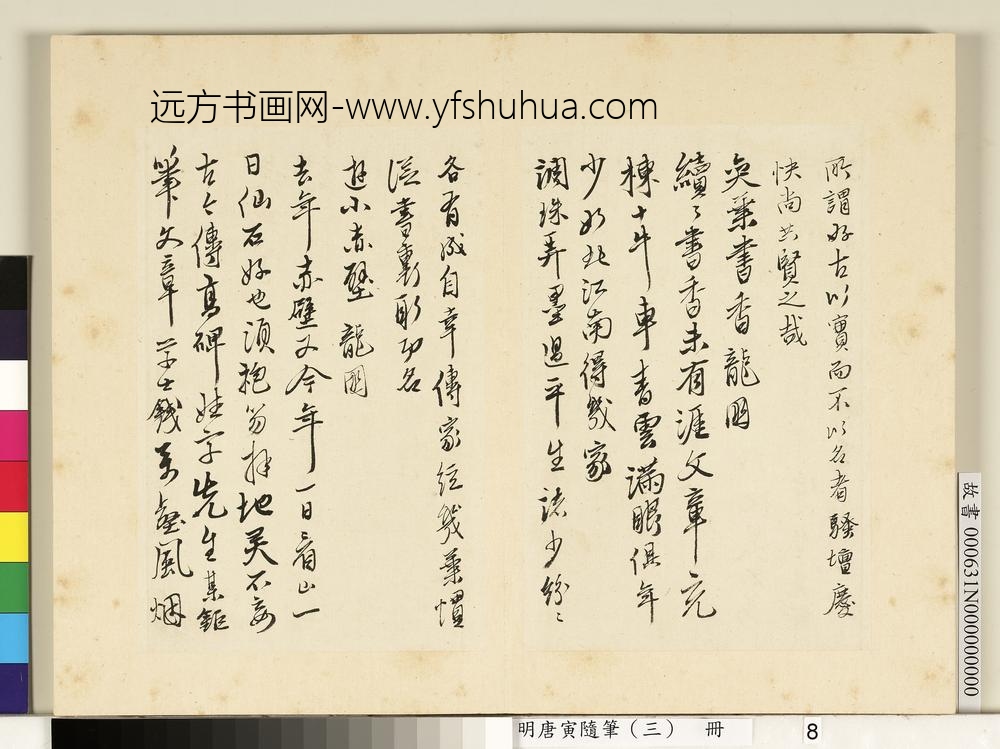 远方书画网-www.yfshuhua.com
所謂好古以實而不以名者騷壇慶
快尚共賢之哉
奕葉書香 龍圖
續々書香未有涯文章充
棟十牛車青雲滿眼俱年
少 江南得幾家
調珠弄墨過平生諸少紛々
各有成自幸傳家經幾葉慣
從書裏取功名
遊小赤壁 龍圖
去年赤壁又今年一日看山一
日仙石好也須抱笏拜地灵不妄
古今傳高碑姓字先生某鉅
筆文章學士錢 風烟
故書 000631N000000000
明唐寅隨筆（三） 冊
8